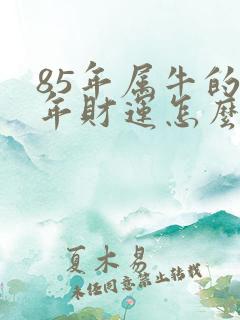 85年属牛的
年财运怎麽
夏木易
未经同意禁止转载